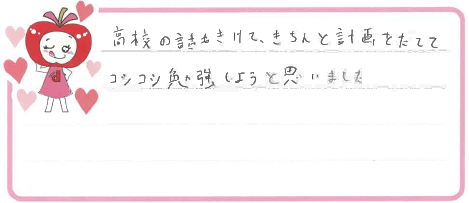 高校の話もきけて、きちんと計画をたてて
コツコツ勉強しようと思いました